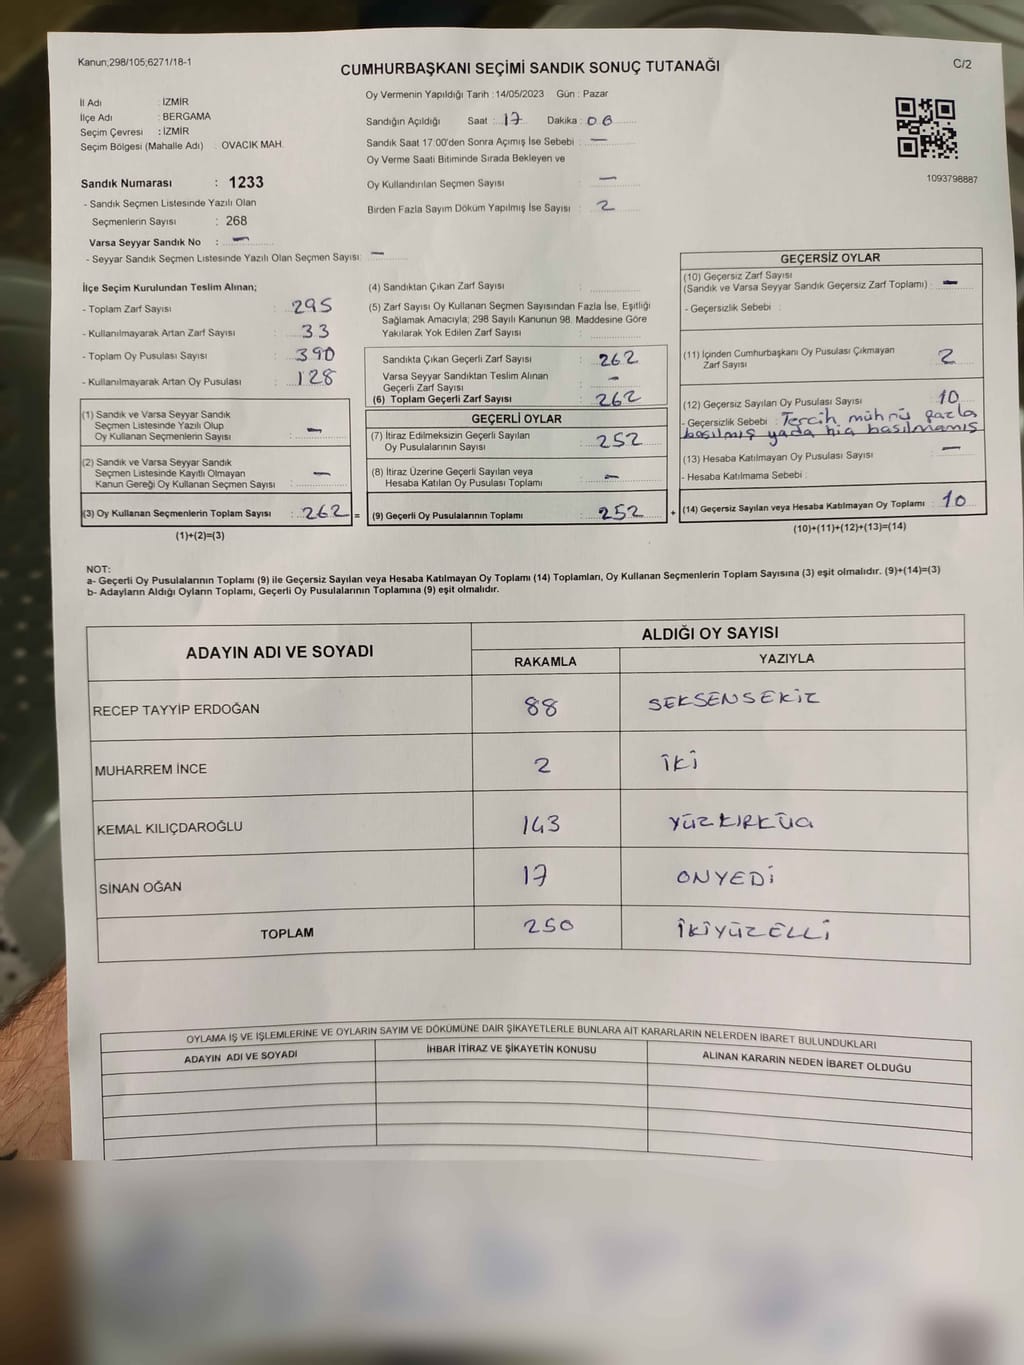 Kanun;298/105;6271/18-1
CUMHURBAŞKANI SEÇİMİ SANDIK SONUÇ TUTANAĞI
C/2
İl Adı : İZMİR
İlçe Adı : BERGAMA
Seçim Çevresi : İZMİR
Seçim Bölgesi (Mahalle Adı) : OVACIK MAH.
Sandık Numarası : 1233
- Sandık Seçmen Listesinde Yazılı Olan
Seçmenlerin Sayısı : 268
Varsa Seyyar Sandık No : —
- Seyyar Sandık Seçmen Listesinde Yazılı Olan Seçmen Sayısı: —
Oy Vermenin Yapıldığı Tarih :14/05/2023 Gün : Pazar
Sandığın Açıldığı Saat : 17 Dakika : 06
Sandık Saat 17:00'den Sonra Açımış İse Sebebi : —
Oy Verme Saati Bitiminde Sırada Bekleyen ve
Oy Kullandırılan Seçmen Sayısı : —
Birden Fazla Sayım Döküm Yapılmış İse Sayısı : 2
1093798887
İlçe Seçim Kurulundan Teslim Alınan;
- Toplam Zarf Sayısı : 295
- Kullanılmayarak Artan Zarf Sayısı : 33
- Toplam Oy Pusulası Sayısı : 390
- Kullanılmayarak Artan Oy Pusulası : 128
(1) Sandık ve Varsa Seyyar Sandık
Seçmen Listesinde Yazılı Olup
Oy Kullanan Seçmenlerin Sayısı : —
(2) Sandık ve Varsa Seyyar Sandık
Seçmen Listesinde Kayıtlı Olmayan
Kanun Gereği Oy Kullanan Seçmen Sayısı : —
(3) Oy Kullanan Seçmenlerin Toplam Sayısı : 262 =
(1)+(2)=(3)
(4) Sandıktan Çıkan Zarf Sayısı :
(5) Zarf Sayısı Oy Kullanan Seçmen Sayısından Fazla İse, Eşitliği
Sağlamak Amacıyla; 298 Sayılı Kanunun 98. Maddesine Göre
Yakılarak Yok Edilen Zarf Sayısı :
Sandıkta Çıkan Geçerli Zarf Sayısı : 262
Varsa Seyyar Sandıktan Teslim Alınan
Geçerli Zarf Sayısı : —
(6) Toplam Geçerli Zarf Sayısı : 262
GEÇERLİ OYLAR
(7) İtiraz Edilmeksizin Geçerli Sayılan
Oy Pusulalarının Sayısı : 252
(8) İtiraz Üzerine Geçerli Sayılan veya
Hesaba Katılan Oy Pusulası Toplamı : —
(9) Geçerli Oy Pusulalarının Toplamı : 252 +
GEÇERSİZ OYLAR
(10) Geçersiz Zarf Sayısı
(Sandık ve Varsa Seyyar Sandık Geçersiz Zarf Toplamı) : —
- Geçersizlik Sebebi :
(11) İçinden Cumhurbaşkanı Oy Pusulası Çıkmayan
Zarf Sayısı : 2
(12) Geçersiz Sayılan Oy Pusulası Sayısı : 10
- Geçersizlik Sebebi : Tercih mührü fazla
basılmış yada hiç basılmamış
(13) Hesaba Katılmayan Oy Pusulası Sayısı : —
- Hesaba Katılmama Sebebi :
(14) Geçersiz Sayılan veya Hesaba Katılmayan Oy Toplamı : 10
(10)+(11)+(12)+(13)=(14)
NOT:
a- Geçerli Oy Pusulalarının Toplamı (9) ile Geçersiz Sayılan veya Hesaba Katılmayan Oy Toplamı (14) Toplamları, Oy Kullanan Seçmenlerin Toplam Sayısına (3) eşit olmalıdır. (9)+(14)=(3)
b- Adayların Aldığı Oyların Toplamı, Geçerli Oy Pusulalarının Toplamına (9) eşit olmalıdır.
ADAYIN ADI VE SOYADI
ALDIĞI OY SAYISI
RAKAMLA YAZIYLA
RECEP TAYYİP ERDOĞAN 88 SEKSENSEKİZ
MUHARREM İNCE 2 İKİ
KEMAL KILIÇDAROĞLU 143 YÜZKIRKÜÇ
SİNAN OĞAN 17 ONYEDİ
TOPLAM 250 İKİYÜZELLİ
OYLAMA İŞ VE İŞLEMLERİNE VE OYLARIN SAYIM VE DÖKÜMÜNE DAİR ŞİKAYETLERLE BUNLARA AİT KARARLARIN NELERDEN İBARET BULUNDUKLARI
ADAYIN ADI VE SOYADI İHBAR İTİRAZ VE ŞİKAYETİN KONUSU ALINAN KARARIN NEDEN İBARET OLDUĞU